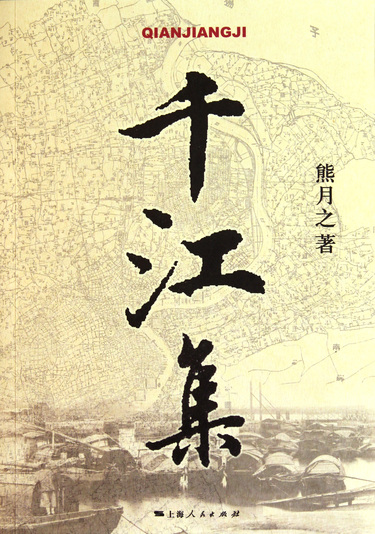 QIANJIANGJI
千江集
熊月之著
上海人民出版社